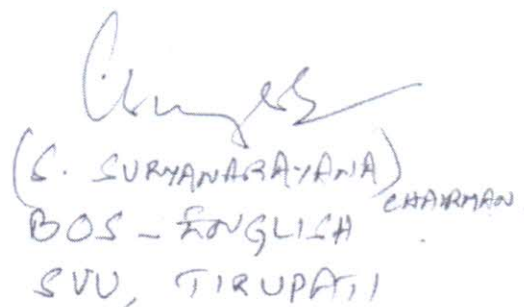 (S. SURYANARAYANA)
CHAIRMAN
BOS - ENGLISH
SVU, TIRUPATI